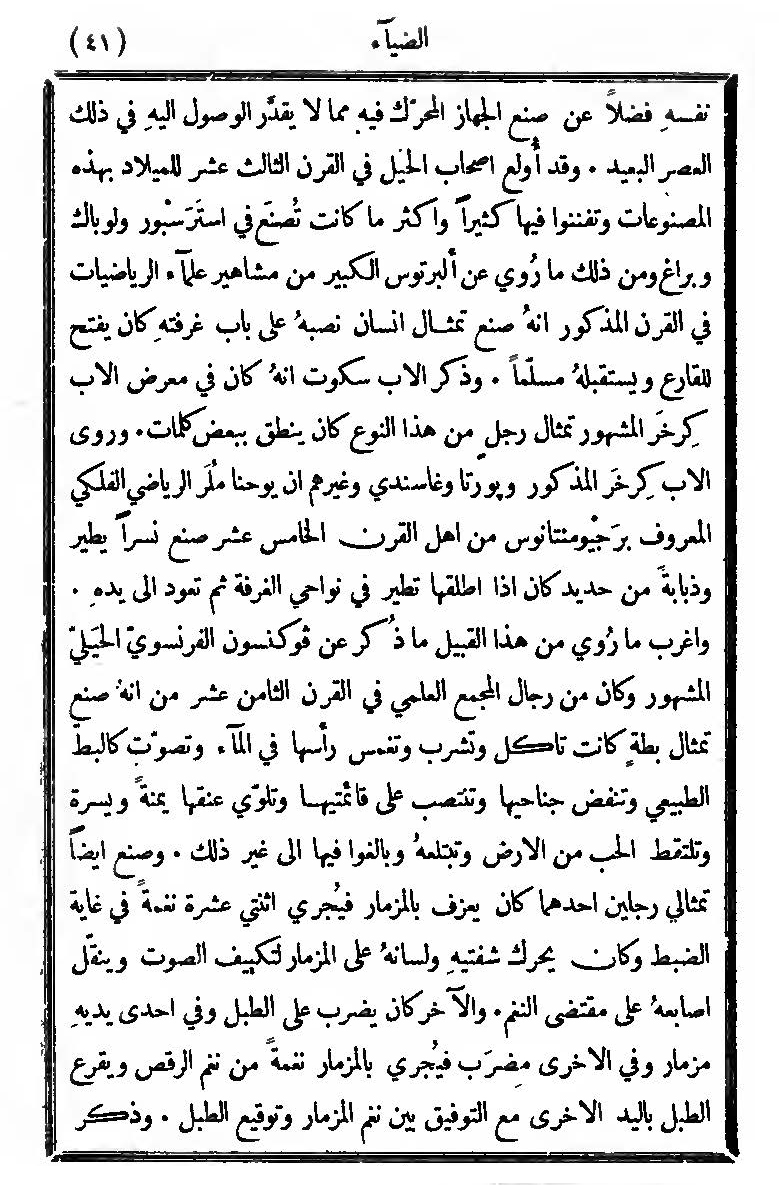 الضيآء
(٤١)
نفسهِ فضلاً عن صنع الجهاز المحرّك فيهِ مما لا يقدَّر الوصول اليهِ في ذلك
العصر البعيد . وقد أُولع اصحاب الحِيَل في القرن الثالث عشر للميلاد بهذه
المصنوعات وتفننوا فيها كثيراً واكثر ما كانت تُصنَع في استَرَسْبور ولوباك
وبراغ ومن ذلك ما رُوي عن ألبرتوس الكبير من مشاهير علمآء الرياضيات
في القرن المذكور انهُ صنع تمثال انسان نصبهُ على باب غرفتهِ كان يفتح
للقارع ويستقبلهُ مسلّماً . وذكر الاب سكوت انهُ كان في معرض الاب
كِرخَر المشهور تمثال رجلٍ من هذا النوع كان ينطق ببعض كلمات . وروى
الاب كِرخَر المذكور وپورتا وغاسندي وغيرهم ان يوحنا مُلَر الرياضي الفلكي
المعروف برَجْيومنتانوس من اهل القرن الخامس عشر صنع نسراً يطير
وذبابةً من حديد كان اذا اطلقها تطير في نواحي الغرفة ثم تعود الى يدهِ .
واغرب ما رُوي من هذا القبيل ما ذُكر عن ڤوكنسون الفرنسويّ الحِيَليّ
المشهور وكان من رجال المجمع العلمي في القرن الثامن عشر من انهُ صنع
تمثال بطةٍ كانت تاكل وتشرب وتغمس رأسها في المآء وتصوّت كالبطّ
الطبيعي وتنفض جناحيها وتنتصب على قائمتيها وتلوّي عنقها يمنةً ويسرة
وتلتقط الحب من الارض وتبتلعهُ وبالغوا فيها الى غير ذلك . وصنع ايضاً
تمثالي رجلين احدهما كان يعزف بالمزمار فيُجري اثنتي عشرة نغمةً في غاية
الضبط وكان يحرك شفتيهِ ولسانهُ على المزمار لتكييف الصوت وينقّل
اصابعهُ على مقتضى النغم . والآخر كان يضرب على الطبل وفي احدى يديهِ
مزمار وفي الاخرى مِضرَب فيُجري بالمزمار نغمةً من نغم الرقص ويقرع
الطبل باليد الاخرى مع التوفيق بين نغم المزمار وتوقيع الطبل . وذكر